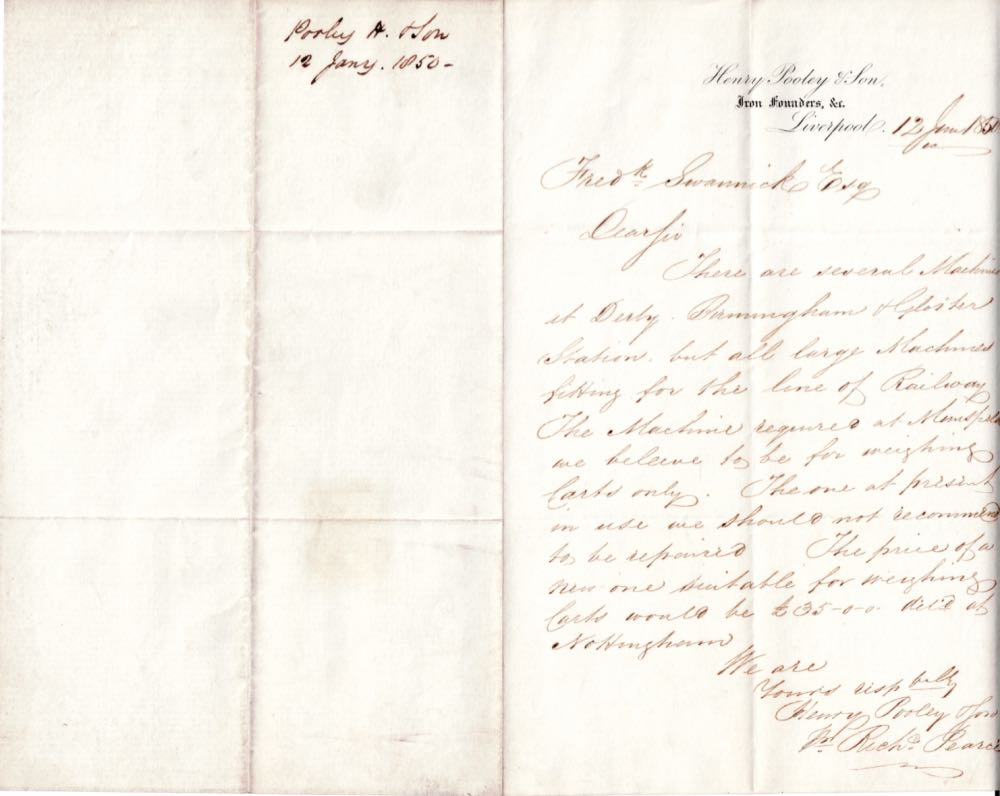 Pooley H. & Son
12 Jany. 1850-
Henry Pooley & Son,
Iron Founders, &c.
Liverpool. 12 Jany 1850
Fredk Swanwick Esq
Dear Sir
There are several Machines
at Derby. Birmingham & Gloster
Station. but all large Machines
fitting for the line of Railway
The Machine required at
we beleeve to be for weighing
Carts only. The one at present
in use we should not recommend
to be repaired The price of a
new one suitable for weighing
Carts would be £35-0-0. deld at
Nottingham
We are
Yours respectfully
Henry Pooley & Son
Pr Richd Pearce